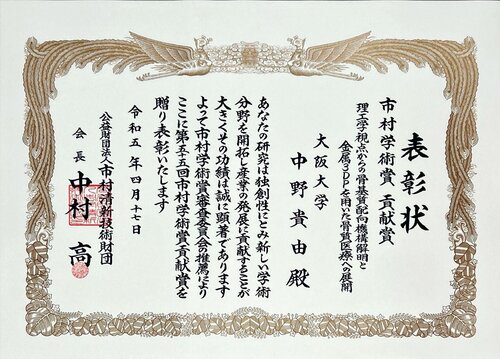 表彰状
市村学術賞 貢献賞
理工学視点からの骨基質配向機構解明と
金属3DPを用いた骨質医療への展開
大阪大学
中野貴由殿
あなたの研究は独創性にとみ新しい学術
分野を開拓し産業の発展に貢献することが
大きくその功績は誠に顕著であります
よって市村学術賞審査委員会の推薦により
ここに第五十五回市村学術賞貢献賞を
贈り表彰いたします
令和五年四月十七日
公益財団法人市村清新技術財団
会長 中村高